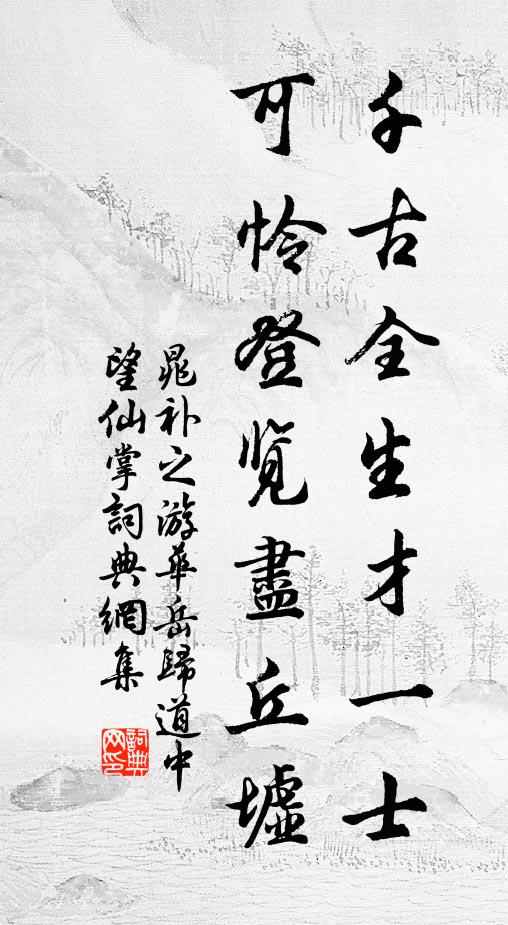 千古全生才一士
可怜登览盡丘墟
晁补之游華岳歸道中
望仙掌詞典網集
詞典
网印